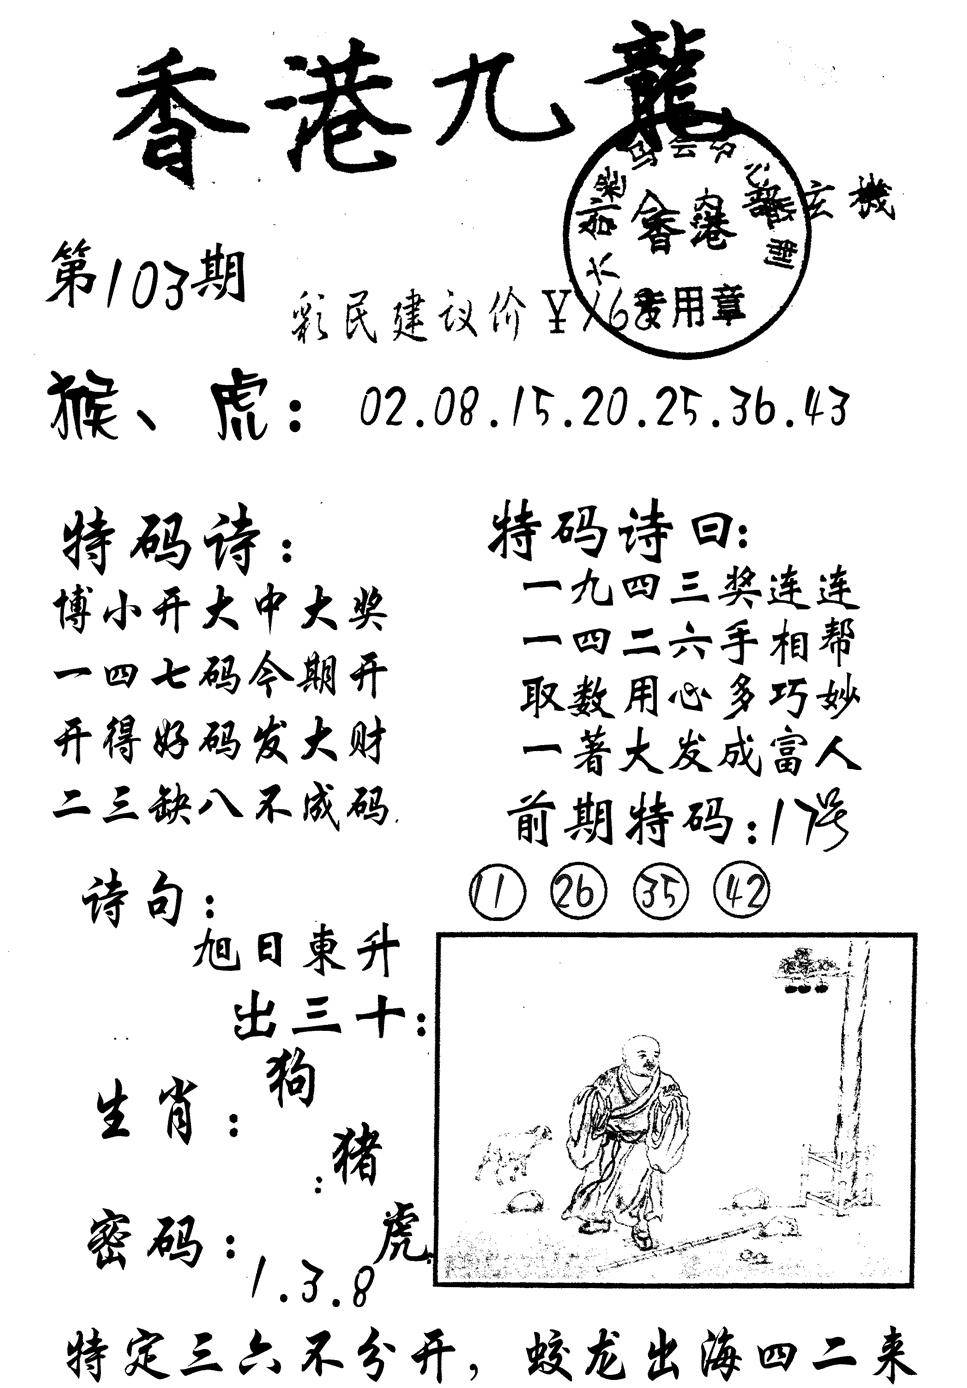 香港九龍
内部玄機
香港
专用章
第103期
彩民建议价¥168
猴、虎：02.08.15.20.25.36.43
特码诗：
博小开大中大奖
一四七码今期开
开得好码发大财
二三缺八不成码.
特码诗曰：
一九四三奖连连
一四二六手相帮
取数用心多巧妙
一著大发成富人
前期特码：17号
11 26 35 42
诗句：
旭日東升
出三十：
生肖：狗
：猪
虎.
密码：1.3.8
特定三六不分开，蛟龙出海四二来